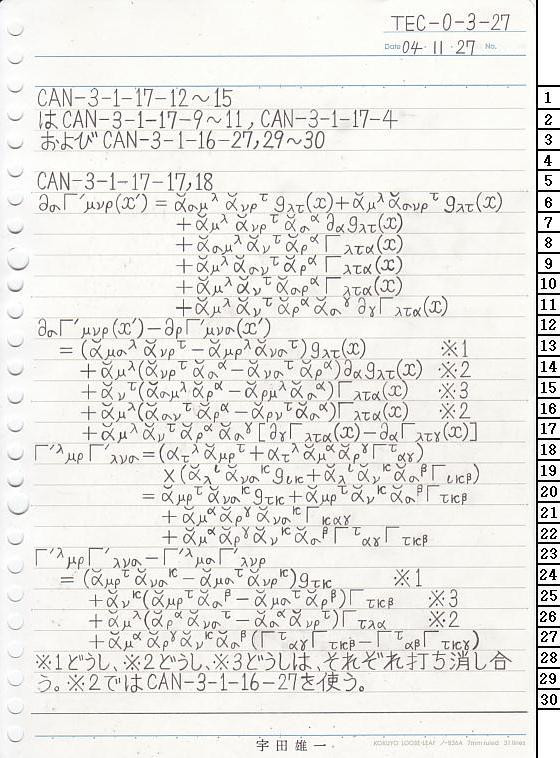 TEC-0-3-27
Date 04・11・27 No.
CAN-3-1-17-12～15
はCAN-3-1-17-9～11, CAN-3-1-17-4
およびCAN-3-1-16-27,29～30
CAN-3-1-17-17,18
∂σΓ'μνρ(x') = ᾰσμ^λ ᾰνρ^τ gλτ(x)+ᾰμ^λ ᾰσνρ^τ gλτ(x)
+ᾰμ^λ ᾰνρ^τ ᾰσ^α ∂αgλτ(x)
+ᾰσμ^λ ᾰν^τ ᾰρ^α Γλτα(x)
+ᾰμ^λ ᾰσν^τ ᾰρ^α Γλτα(x)
+ᾰμ^λ ᾰν^τ ᾰσρ^α Γλτα(x)
+ᾰμ^λ ᾰν^τ ᾰρ^α ᾰσ^γ ∂γΓλτα(x)
∂σΓ'μνρ(x')-∂ρΓ'μνσ(x')
=(ᾰμσ^λ ᾰνρ^τ-ᾰμρ^λ ᾰνσ^τ)gλτ(x) ※1
+ᾰμ^λ(ᾰνρ^τ ᾰσ^α-ᾰνσ^τ ᾰρ^α)∂αgλτ(x) ※2
+ᾰν^τ(ᾰσμ^λ ᾰρ^α-ᾰρμ^λ ᾰσ^α)Γλτα(x) ※3
+ᾰμ^λ(ᾰσν^τ ᾰρ^α-ᾰρν^τ ᾰσ^α)Γλτα(x) ※2
+ᾰμ^λ ᾰν^τ ᾰρ^α ᾰσ^γ[∂γΓλτα(x)-∂αΓλτγ(x)]
Γ'^λμρΓ'λνσ=(ατ^λ ᾰμρ^τ+ατ^λ ᾰμ^α ᾰρ^γ Γ^ταγ)
×(ᾰλ^ι ᾰνσ^κ gικ+ᾰλ^ι ᾰν^κ ᾰσ^β Γικβ)
=ᾰμρ^τ ᾰνσ^κ gτκ+ᾰμρ^τ ᾰν^κ ᾰσ^β Γτκβ
+ᾰμ^α ᾰρ^γ ᾰνσ^κ Γκαγ
+ᾰμ^α ᾰρ^γ ᾰν^κ ᾰσ^β Γ^ταγ Γτκβ
Γ'^λμρΓ'λνσ-Γ'^λμσΓ'λνρ
=(ᾰμρ^τ ᾰνσ^κ-ᾰμσ^τ ᾰνρ^κ)gτκ ※1
+ᾰν^κ(ᾰμρ^τ ᾰσ^β-ᾰμσ^τ ᾰρ^β)Γτκβ ※3
+ᾰμ^λ(ᾰρ^α ᾰνσ^τ-ᾰσ^α ᾰνρ^τ)Γτλα ※2
+ᾰμ^α ᾰρ^γ ᾰν^κ ᾰσ^β(Γ^ταγ Γτκβ-Γ^ταβ Γτκγ)
※1どうし、※2どうし、※3どうしは、それぞれ打ち消し合
う。※2ではCAN-3-1-16-27を使う。
宇田雄一
KOKUYO LOOSE-LEAF ノ-836A 7mm ruled 31 lines
1
2
3
4
5
6
7
8
9
10
11
12
13
14
15
16
17
18
19
20
21
22
23
24
25
26
27
28
29
30